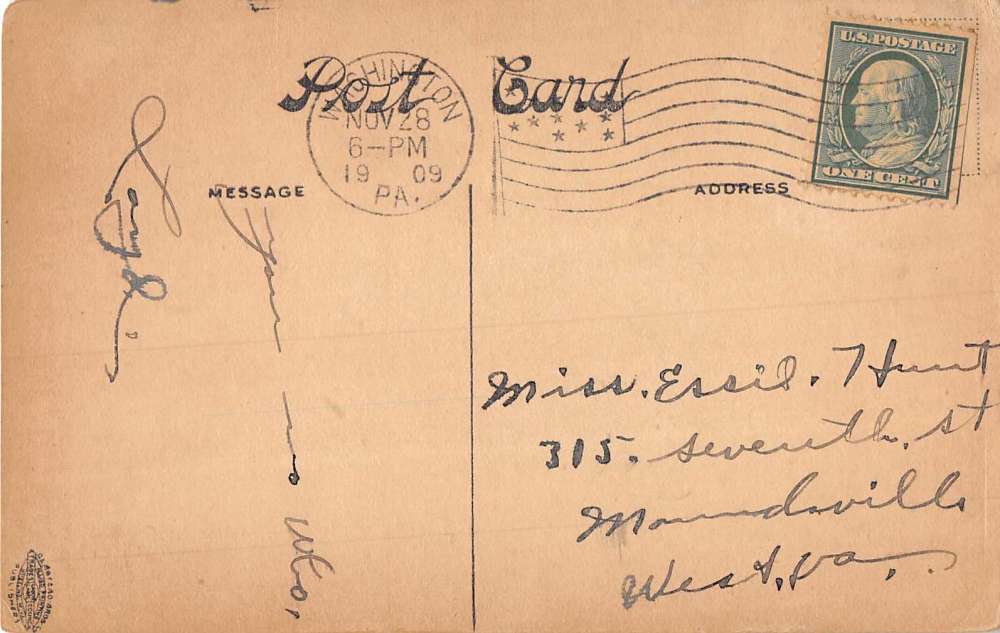 Post Card
WASHINGTON
NOV 28
6-PM
19 09
PA.
U.S. POSTAGE
ONE CENT
MESSAGE
ADDRESS
Who,
Miss. Essie. Hunt
315. Seventh. st
Moundsville
West, va,.